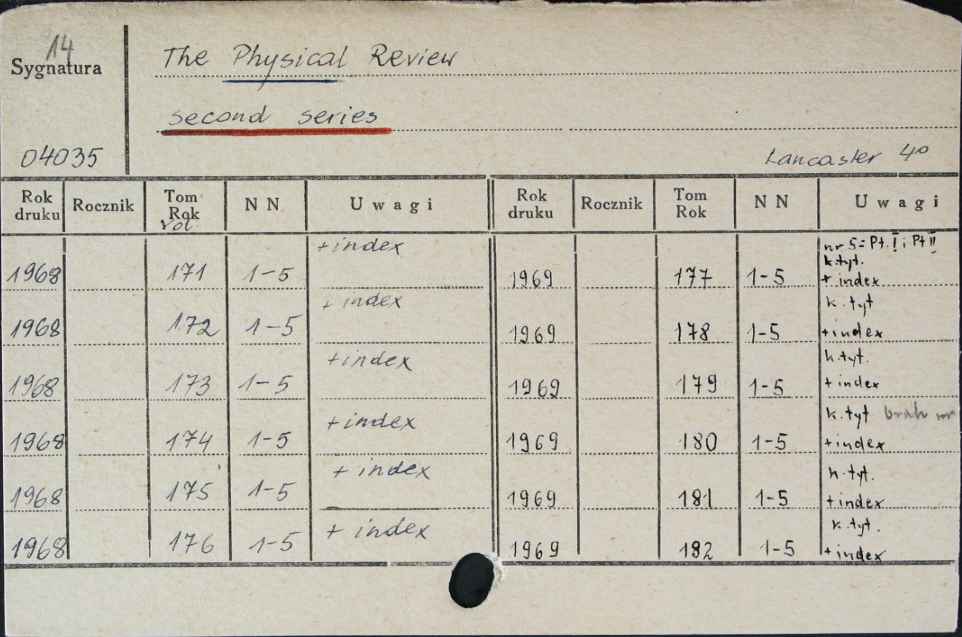 14
Sygnatura
The Physical Review
second series
04035
Lancaster 4º
Rok druku Rocznik Tom Rok vol N N Uwagi Rok druku Rocznik Tom Rok N N Uwagi
1968 171 1-5 +index 1969 177 1-5 nr 5=Pt. I i Pt II k.tyt. + index
1968 172 1-5 + index 1969 178 1-5 k.tyt +index
1968 173 1-5 +index 1969 179 1-5 k.tyt. + index
1968 174 1-5 +index 1969 180 1-5 k.tyt brak nr +index
1968 175 1-5 + index 1969 181 1-5 k.tyt. +index
1968 176 1-5 + index 1969 182 1-5 k.tyt. +index